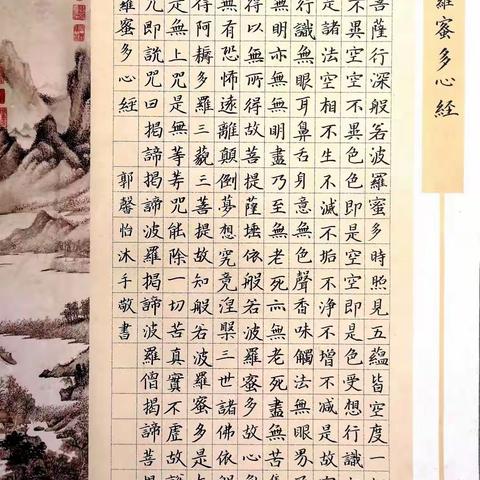 羅蜜多心經
菩薩行深般若波羅蜜多時照見五蘊皆空度一
不異空空不異色色即是空空即是色受想行識
是諸法空相不生不滅不垢不淨不增不減是故
行識無眼耳鼻舌身意無色聲香味觸法無眼界
無明亦無明盡乃至無老死亦無老死盡無苦集
得以無所得故菩提薩埵依般若波羅蜜多故心
無有恐怖遠離顛倒夢想究竟涅槃三世諸佛依
得阿耨多羅三藐三菩提故知般若波羅蜜多是
是無上咒是無等等咒能除一切苦真實不虛故
咒即說咒曰揭諦揭諦波羅揭諦波羅僧揭諦菩
羅蜜多心經 郭馨怡沐手敬書